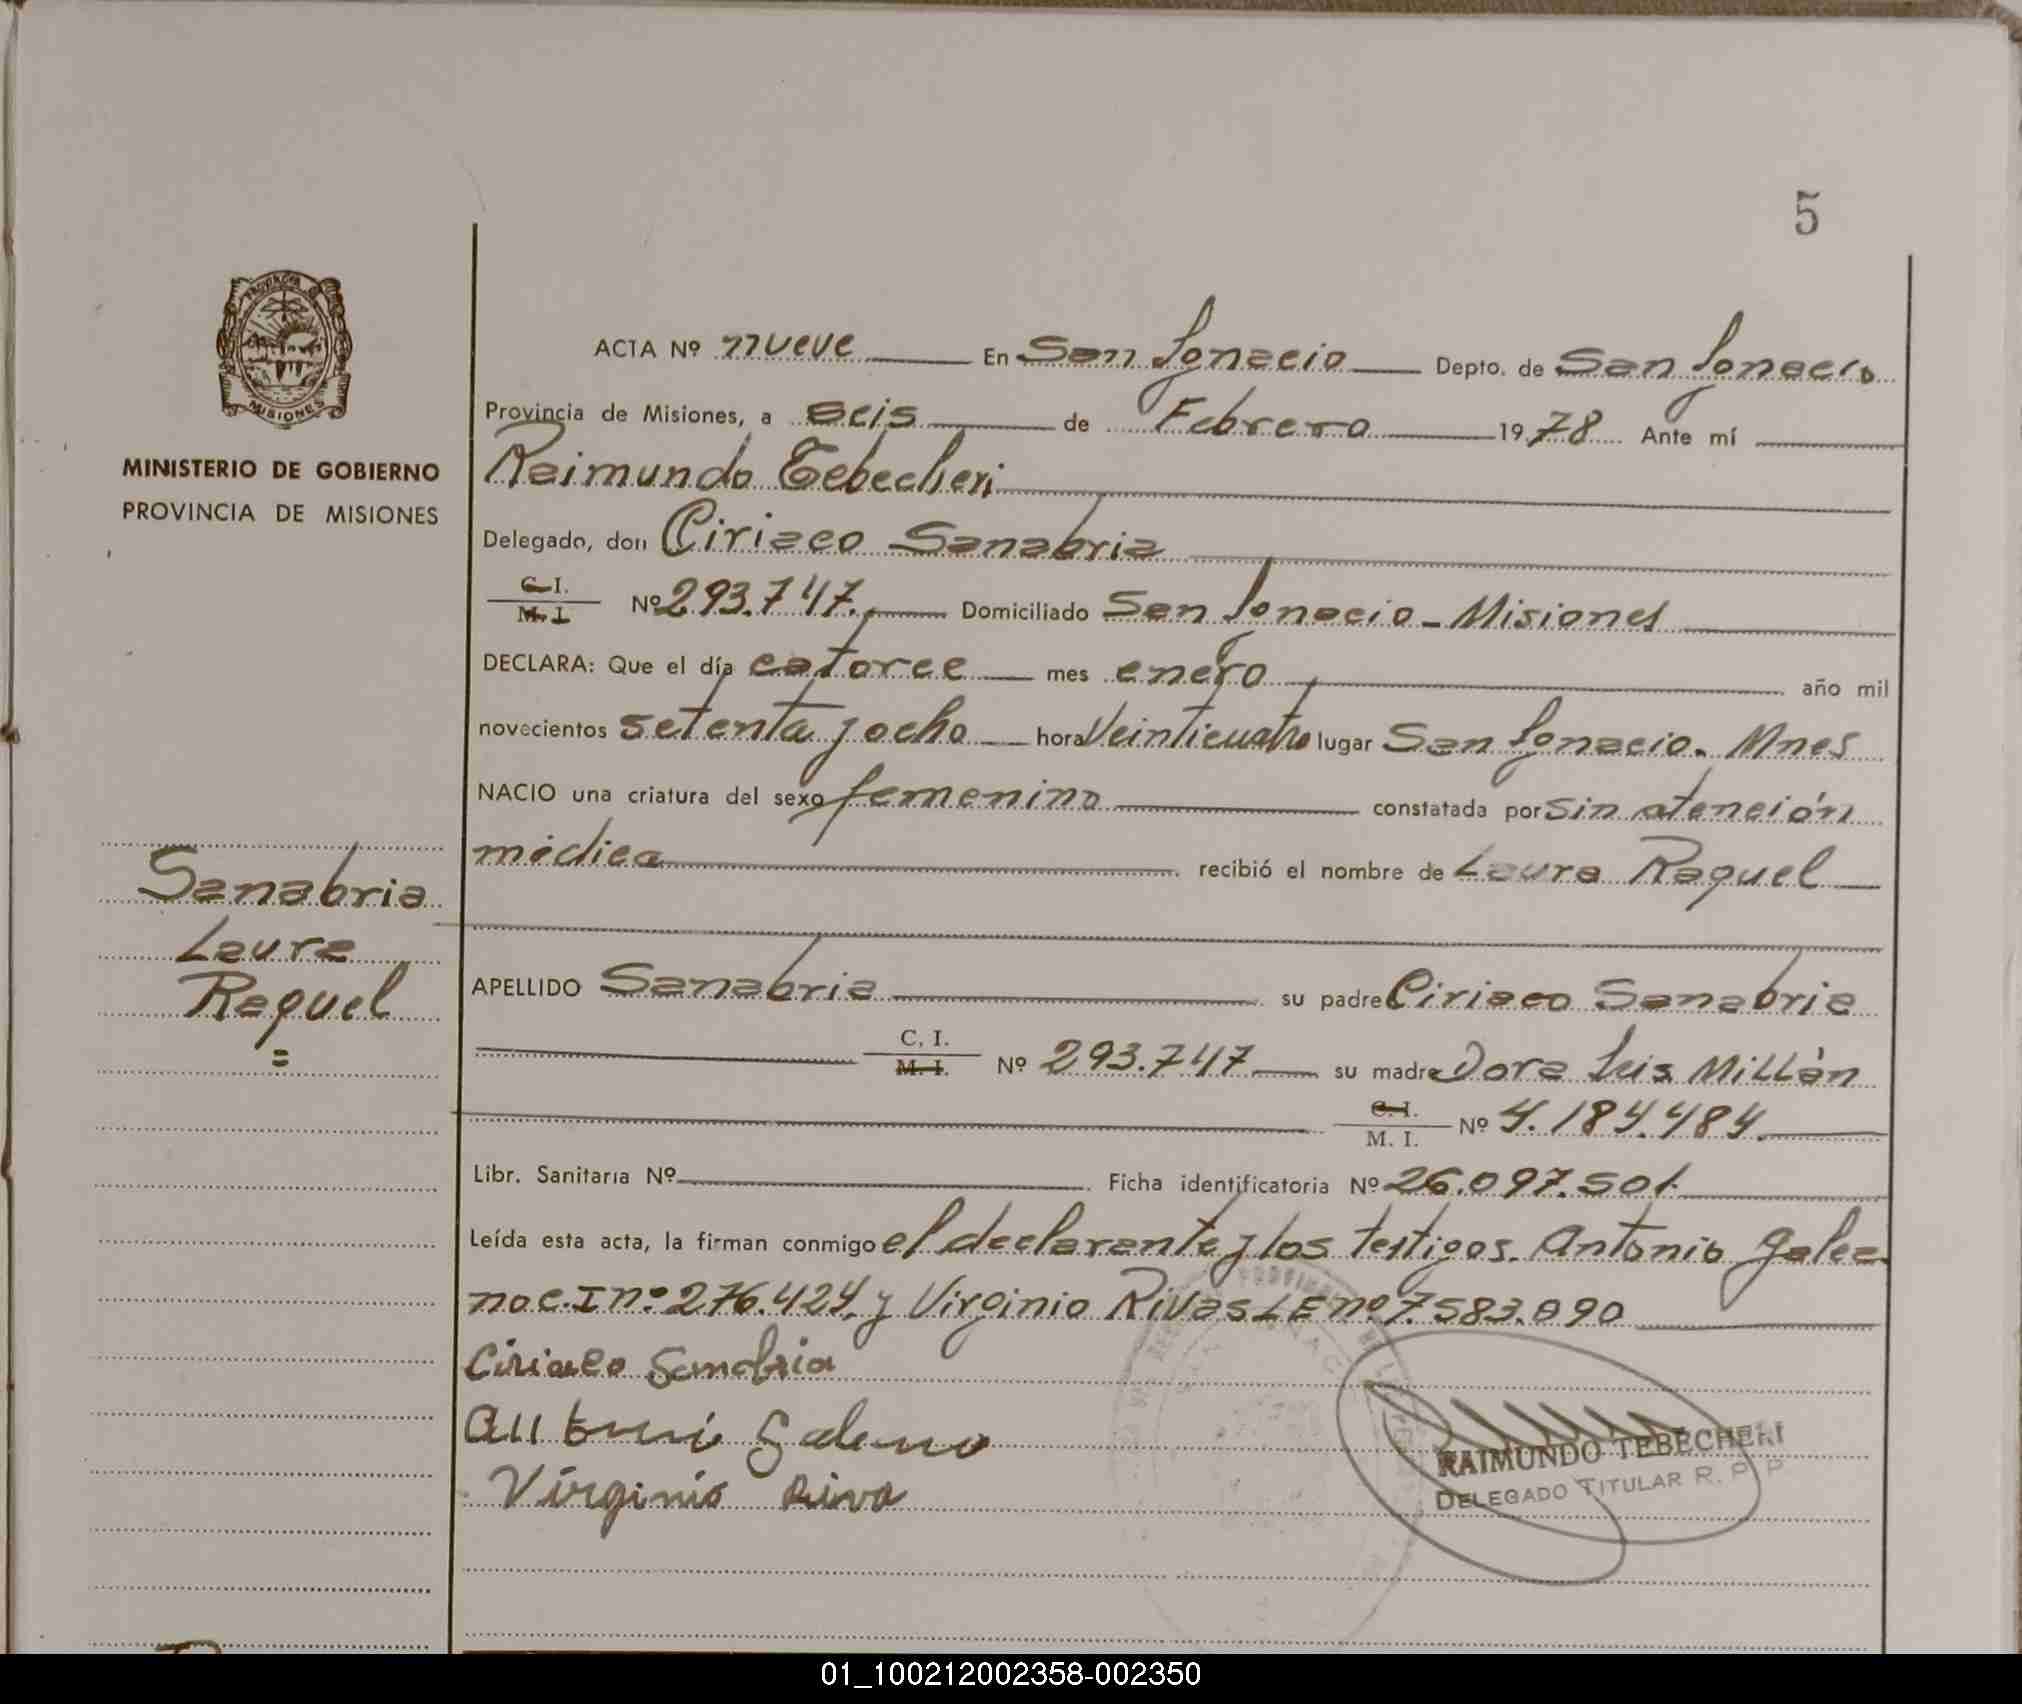 5
PROVINCIA D
MISIONES
MINISTERIO DE GOBIERNO
PROVINCIA DE MISIONES
ACTA Nº nueve En San Ignacio Depto. de San Ignacio
Provincia de Misiones, a seis de Febrero 1978 Ante mí
Raimundo Tebecheri
Delegado, don Ciriaco Sanabria
C. I.
M. I. Nº 293.747. Domiciliado San Ignacio - Misiones
DECLARA: Que el día catorce mes enero año mil
novecientos setenta y ocho hora Veinticuatro lugar San Ignacio. Mnes
NACIO una criatura del sexo femenino constatada por sin atención
médica recibió el nombre de Laura Raquel
Sanabria
Laura
Raquel
=
APELLIDO Sanabria su padre Ciriaco Sanabria
C. I.
M. I. Nº 293.747 su madre Dora Luis Millán
C. I.
M. I. Nº 4.184.484.
Libr. Sanitaria Nº Ficha identificatoria Nº 26.097.501.
Leída esta acta, la firman conmigo el declarante y los testigos. Antonio Galea
no C.I nº 276.424. y Virginio Rivas LE nº 7.583.090
Ciriaco Sanabria
Galeno
Virginio Riva
RAIMUNDO TEBECHERI
DELEGADO TITULAR R. P. P
01_100212002358-002350